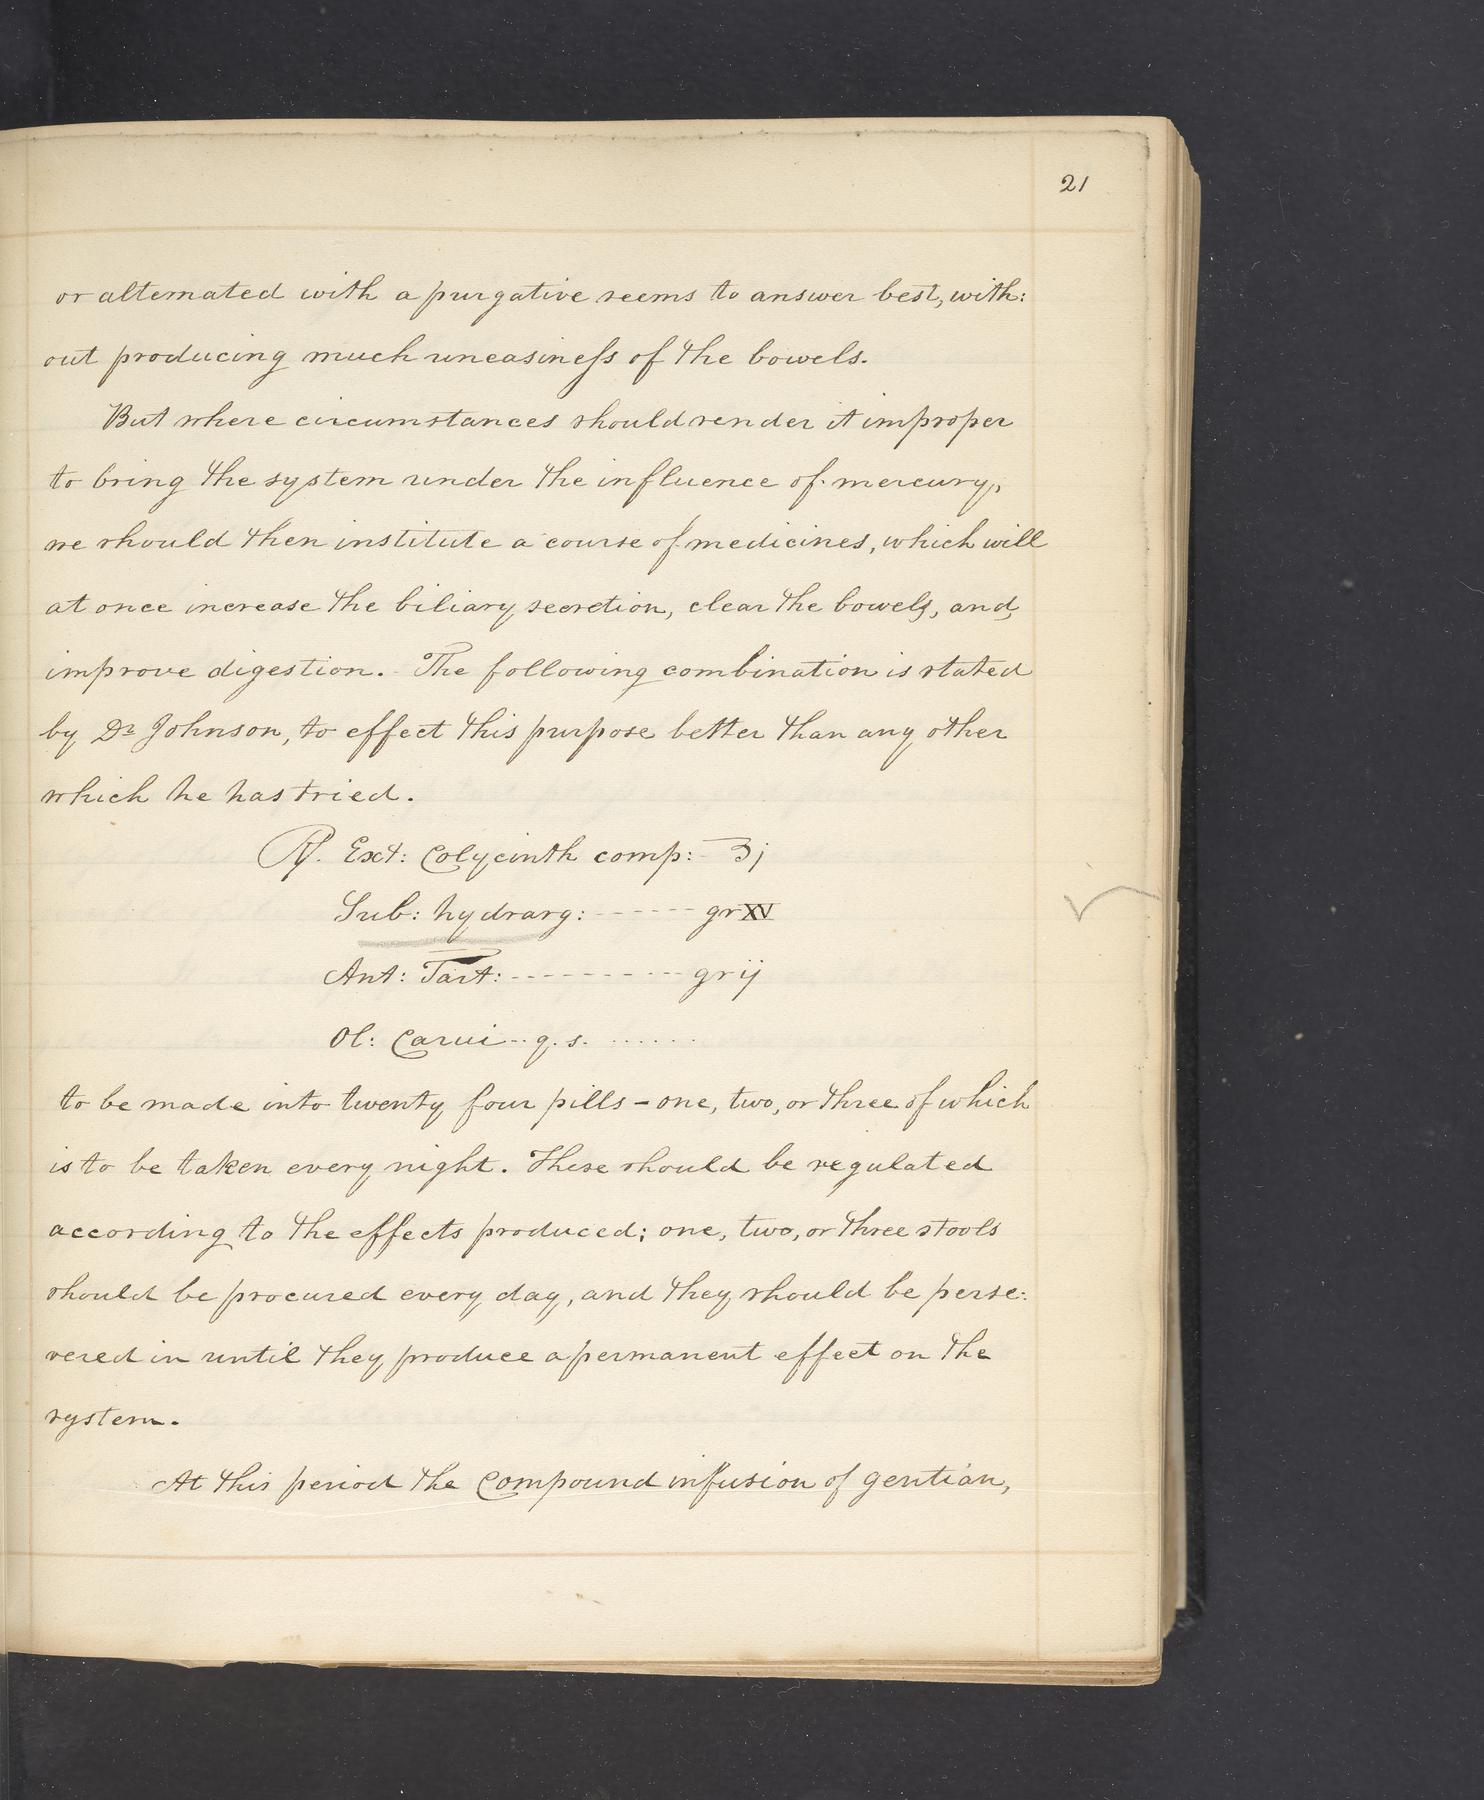 21
or alternated with a purgative seems to answer best, with:
out producing much uneasineſs of the bowels.
But where circumstances should render it improper
to bring the system under the influence of mercury,
we should then institute a course of medicines, which will
at once increase the biliary secretion, clear the bowels, and,
improve digestion. The following combination is stated
by Dr Johnson, to effect this purpose better than any other
which he has tried.
℞. Ext: Colycinth comp: - ʒj
Sub: hydrarg: ------ gr XV
Ant: Tart: ----------- gr ij
Ol: Carui -- q. s. ......
to be made into twenty four pills - one, two, or three of which
is to be taken every night. These should be regulated
according to the effects produced; one, two, or three stools
should be procured every day, and they should be perse:
vered in until they produce a permanent effect on the
system.
At this period the Compound infusion of gentian,